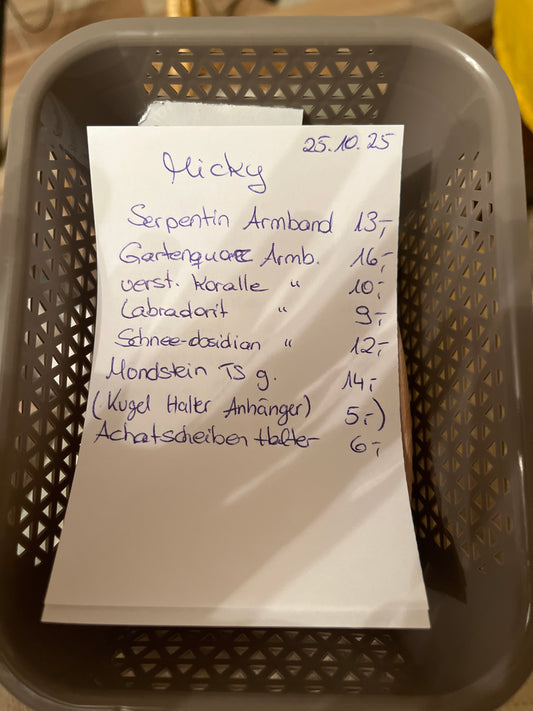 25.10.25
Micky
Serpentin Armband 13,-
Gartenquarz Armb. 16,-
verst. Koralle " 10,-
Labradorit " 9,-
Schnee-obsidian " 12,-
Mondstein TS g. 14,-
(Kugel Halter Anhänger) 5,-)
Achatscheiben Halter 6,-